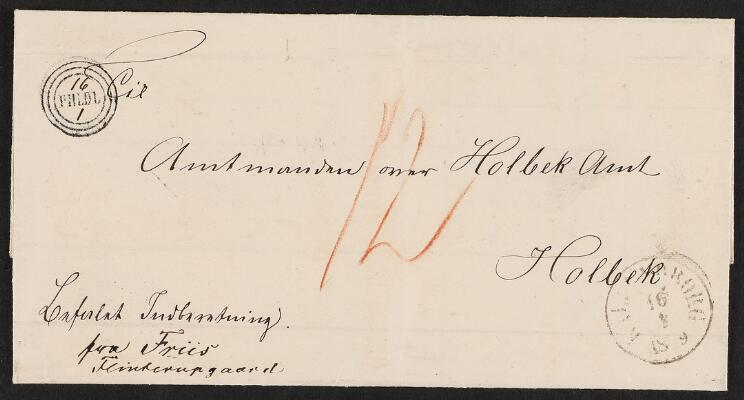 16
FHLDL
1
Til
Amtmanden over Holbek Amt
12
Holbek
16
1
Befalet Indberetning.
fra Friis
Flinterupgaard